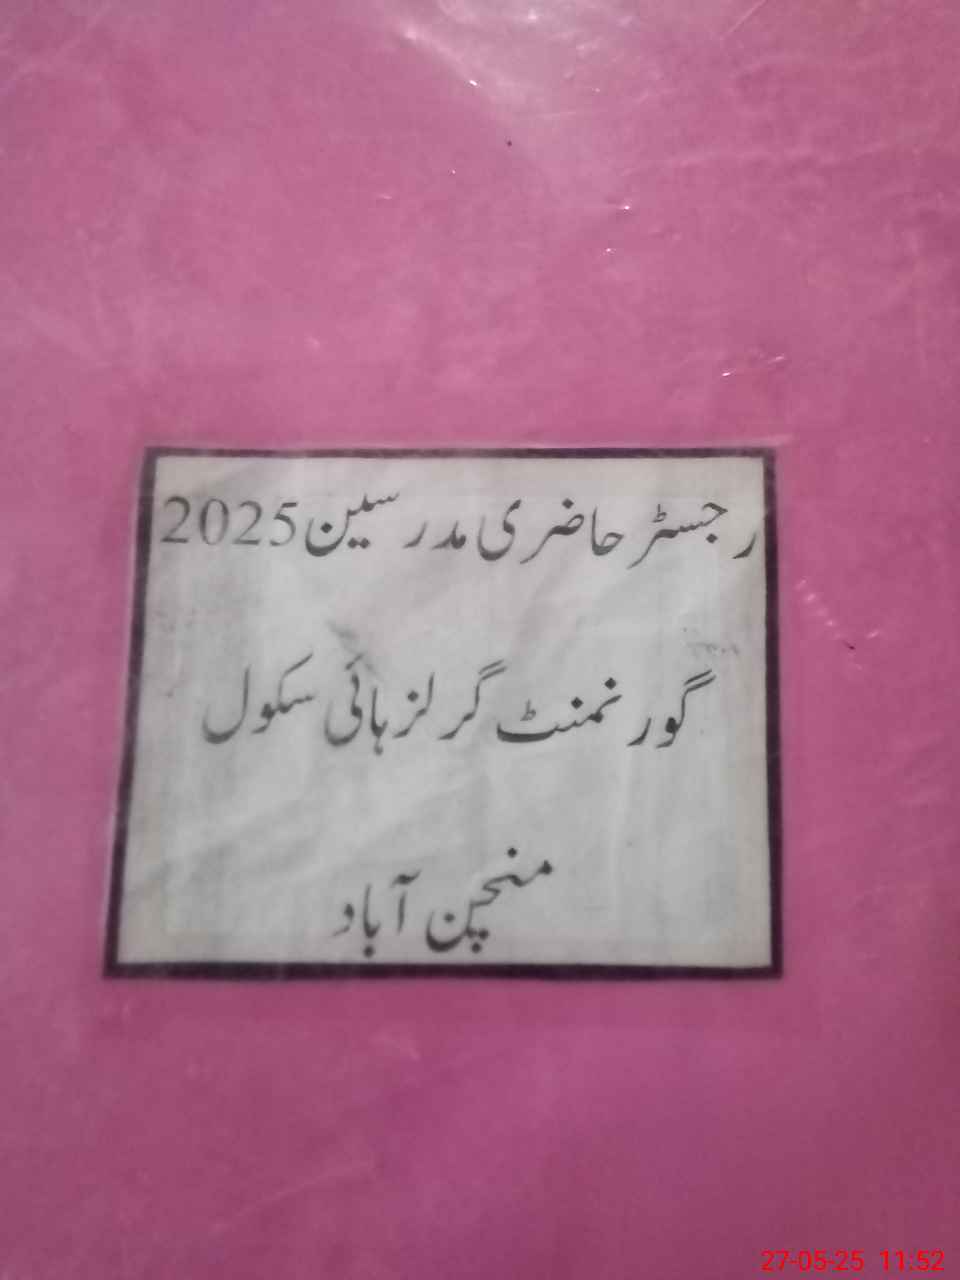 رجسٹر حاضری مدرسین 2025
گورنمنٹ گرلز ہائی سکول
منچن آباد
27-05-25 11:52